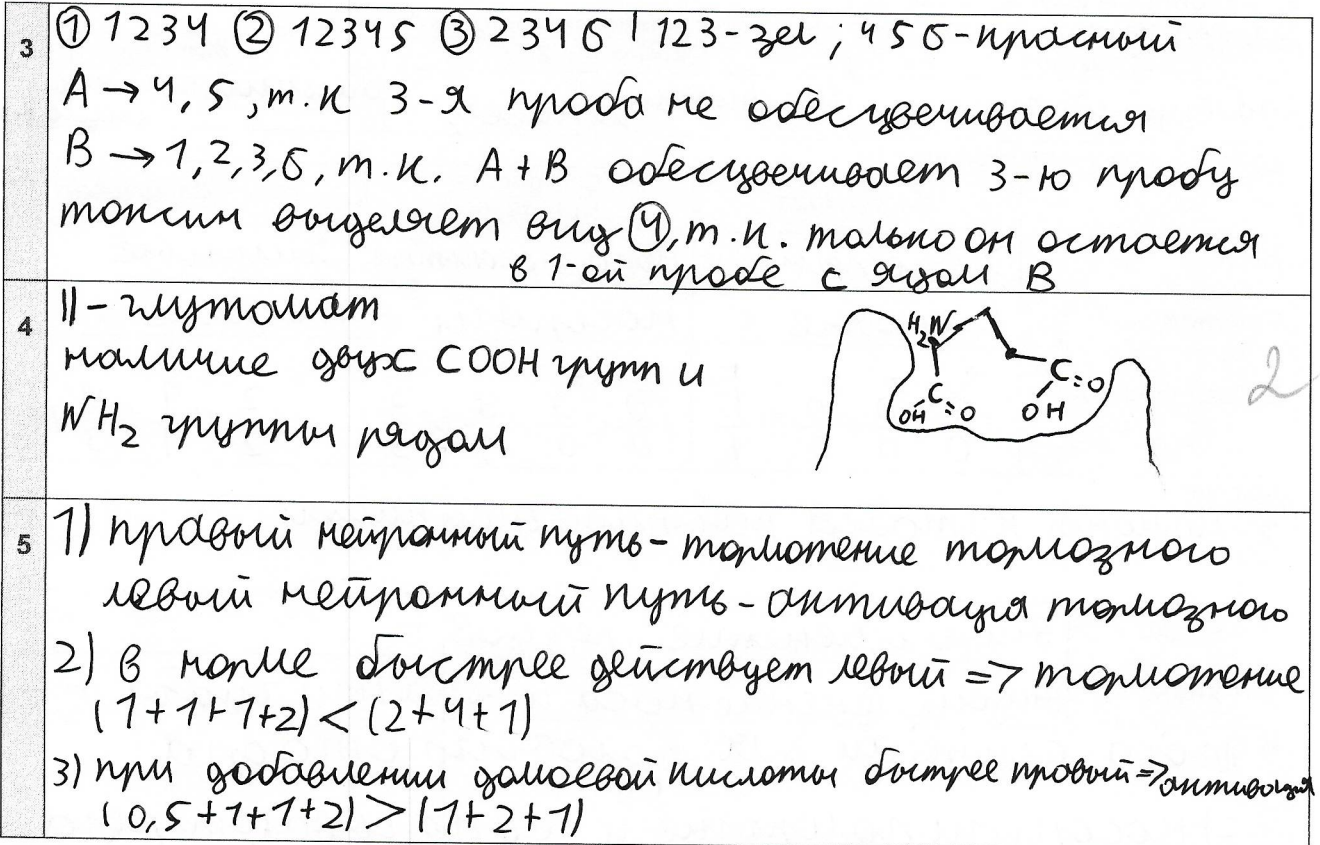 3
① 1234 ② 12345 ③ 2346 | 123-зел ; 456-красный
A → 4, 5, т.к 3-я проба не обесцвечивается
B → 1,2,3,6, т.к. A + B обесцвечивает 3-ю пробу
токсин выделяет вид ④, т.к. только он остается
в 1-ой пробе с ядом B
4
11 - глутомат
наличие двух COOH групп и
NH₂ группы рядом
H₂N
C = O
OH
C = O
OH
2
5
1) правый нейронный путь - тормотение тормозного
левый нейронный путь - активация тормозного
2) в норме быстрее действует левый => тормотение
(1+1+1+2) < (2+4+1)
3) при добавлении домоевой кислоты быстрее правый => активация
(0,5+1+1+2) > (1+2+1)